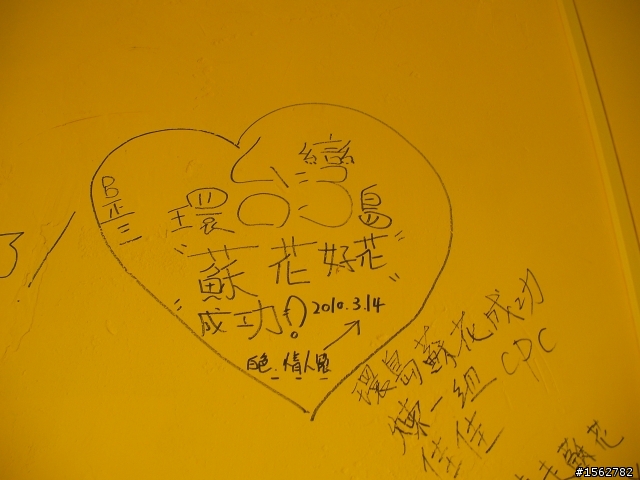 B
正
三
台灣
環島
"蘇花好花"
成功!) 2010.3.14
白色.情人節
環島蘇花成功
煉一組 CPC
佳佳
蘇花
#1562782